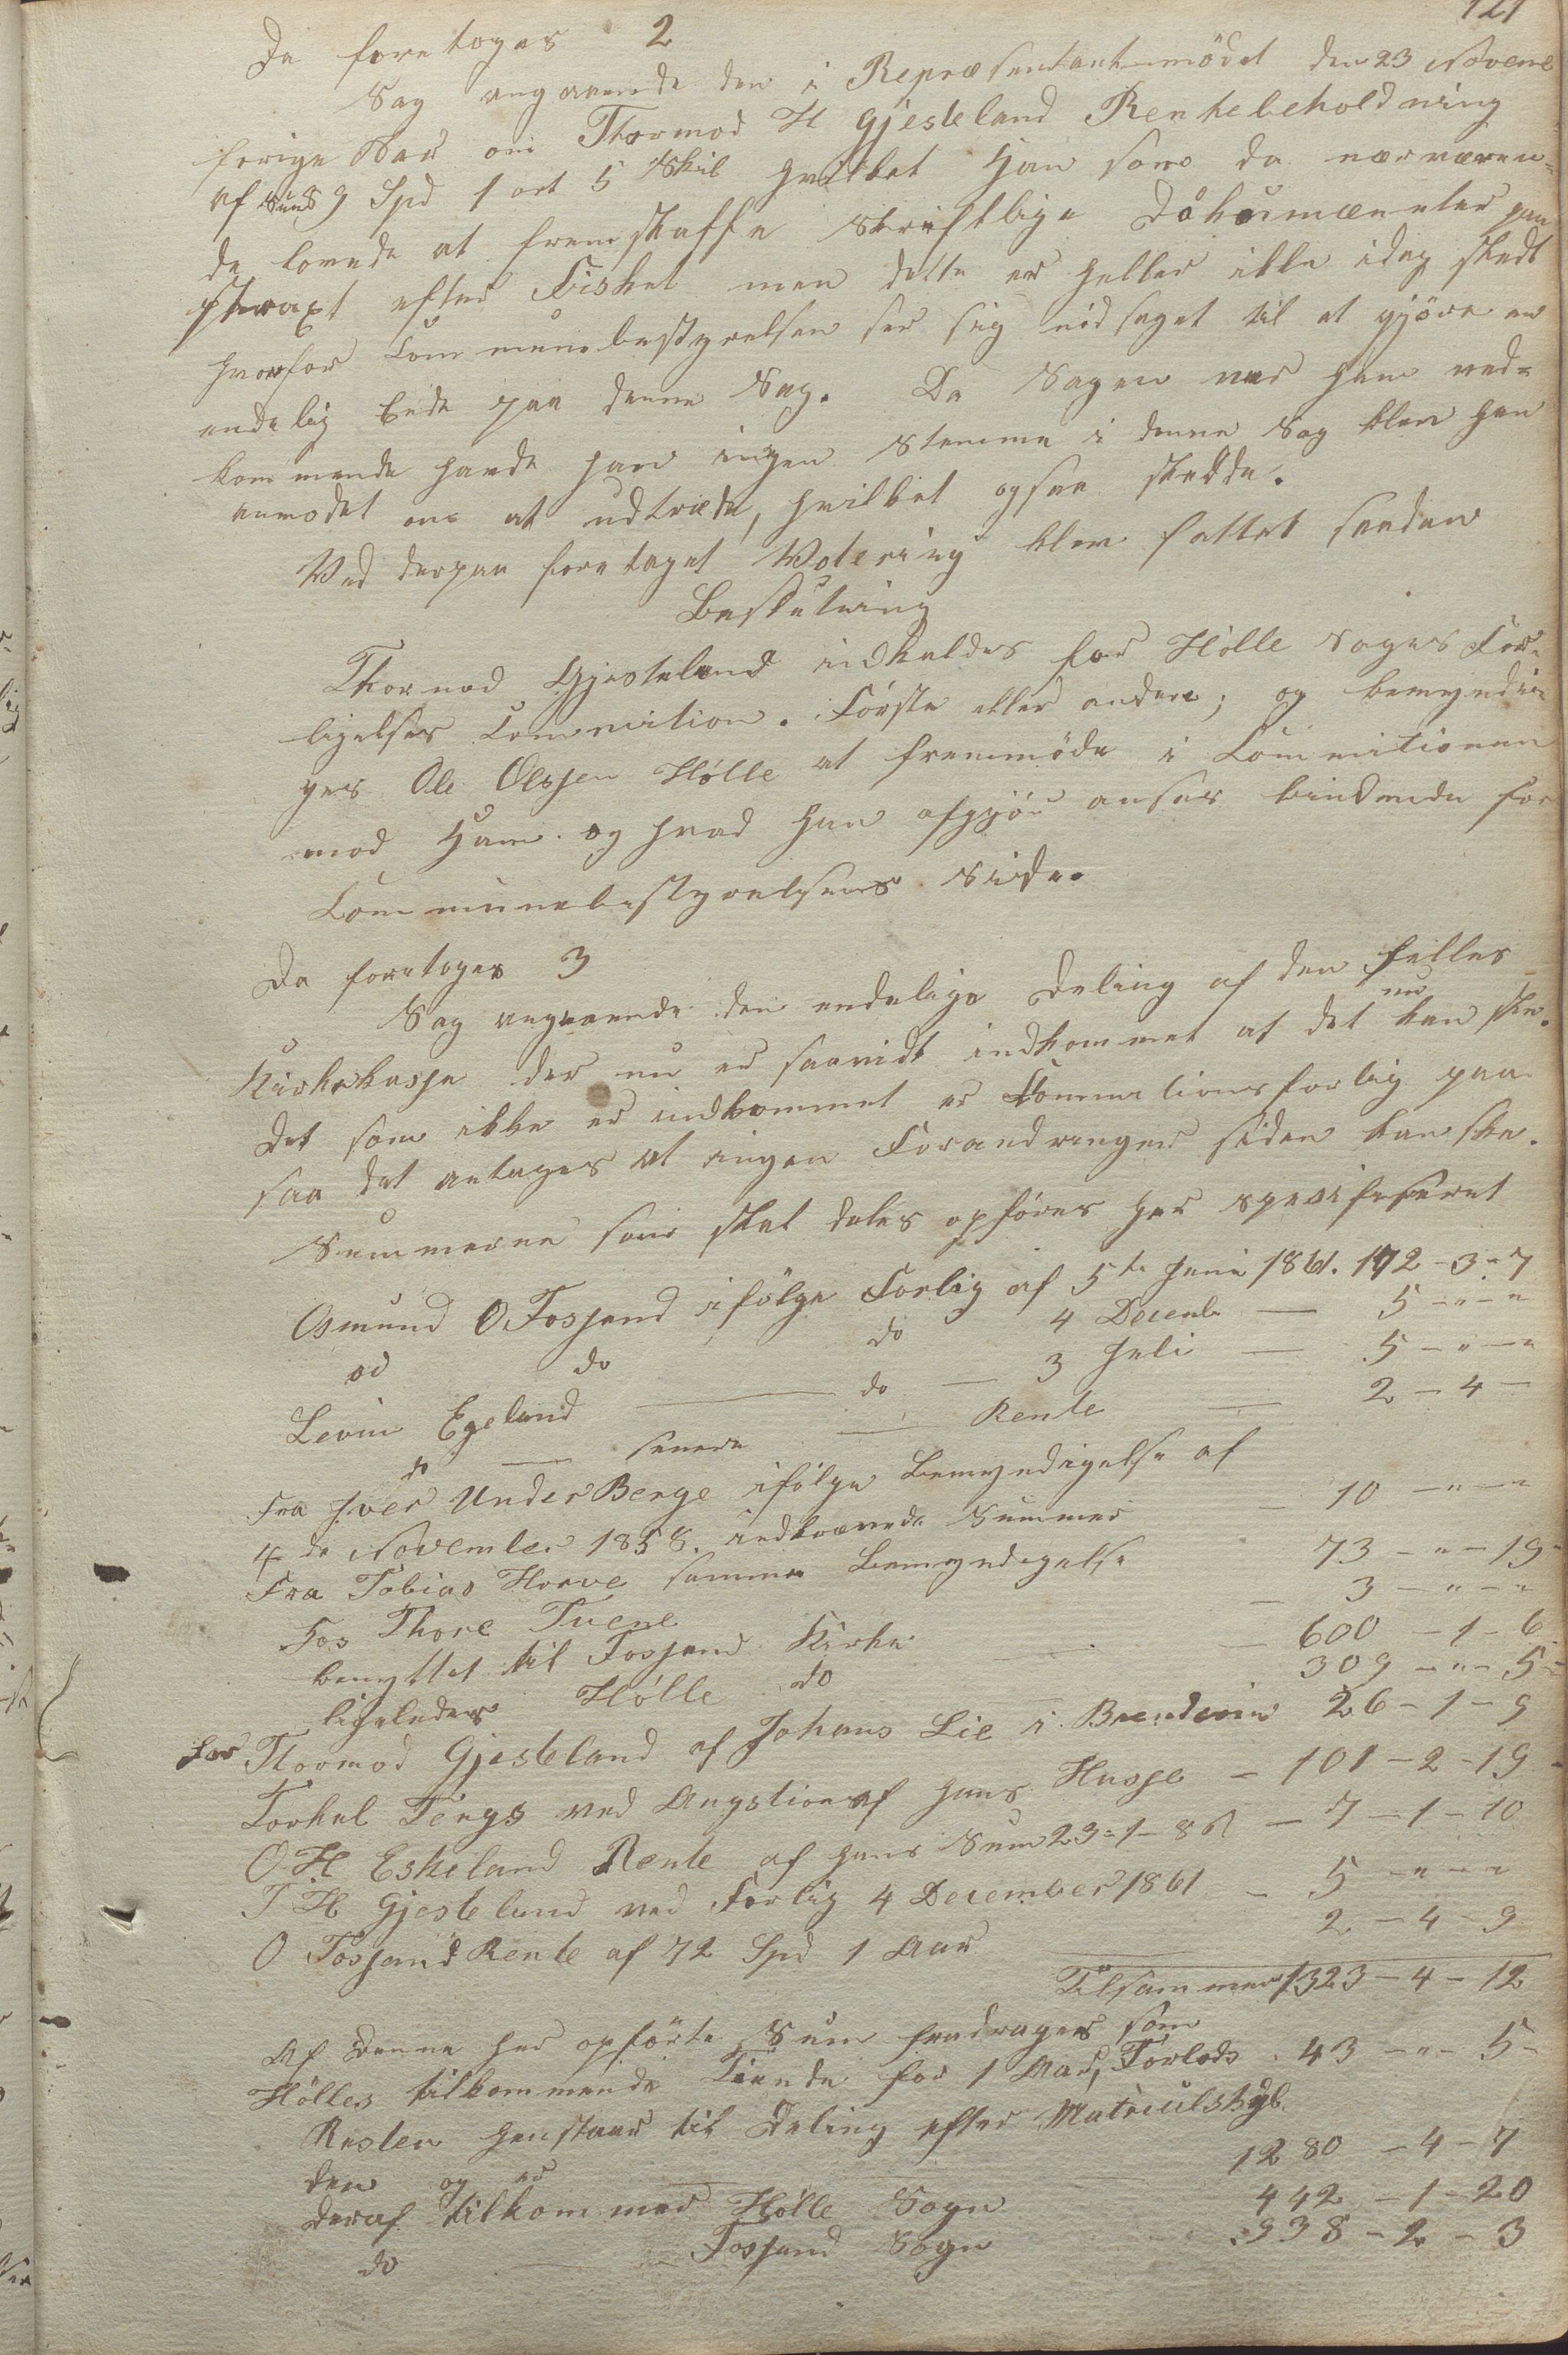 121
Da foretoges 2
Sag angaaende den i Repræsentantmødet den 23 Novemb
forige Aar om Thormod H Gjesteland Rentebeholdning
af Sum 9 Spd 1 ort 5 Skil hvilket Han som da nærværen-
de lovede at fremskaffe Skriftlige Dokumænter paa
straxt efter Fisket men dette er heller ikke idag skedt
hvorfor Communebestyrelsen ser sig nødsaget til at gjøre en
endelig Ende paa denne Sag. Da Sagen var ham ved-
kommende havde han ingen Stemme i denne Sag blev han
anmodet om at udtræde, hvilket ogsaa skedde.
Ved derpaa foretaget Votering blev fattet saadan
Beslutning
Thormod Gjesteland indkaldes for Hölle Sogns For-
ligelses Commition. Første eller anden; og bemyndi-
ges Ole Olssen Hölle at fremmøde i Commitionen
mod Ham og hvad han afgjør anses bindende for
Communebestyrelsens Side.
Da foretoges 3
Sag angaaende den endelige Deling af den felles
Kirkekasse der nu er saavidt indkommet at det nu kan ske.
Det som ikke er indkommet er Commitionsforlig paa
saa det antages at ingen Forandringer siden kan ske.
Summerne som skal deles opføres her spesifiseret
Osmund O Fossand ifølge Forlig af 5te Juni 1861. 172-3-7
od do do 4 Decembr — 5-"-"
Levin Egeland — do — 3 Juli — 5-"-"
do — senere — Rente — 2-4-
Fra Iver UnderBerge ifølge Bemyndigelse af
4de November 1858. indkrævede Summer — 10-"-"
Fra Tobias Horve samme Bemyndigelse 73-"-19
Hos Thore Tvene — 3-"-"
benyttet til Fossand Kirke — 600-1-6
ligeledes Hölle do 309-"-5
for Thormod Gjesteland af Johans Lie i 26-1-9
Torkel Tengs ved Augstion af hans Husse — 101-2-19
O H Eskeland Rente af hans Sum 23-1-86 — 7-1-10
T H Gjesteland ved Forlig 4 December 1861 — 5-"-"
O Fossand Rente af 72 Spd 1 Aar 2-4-9
Tilsammen 1323-4-12
Af Denne her opførte Sum fradrages som
Hölles tilkommende Tiende for 1 Aar, Forlods. 43-"-5-
Resten henstaar til Deling efter Matriculskyl-
den og er 1280-4-7
deraf tilkommer Hölle Sogn 442-1-20
do — Fossand Sogn 838-2-3